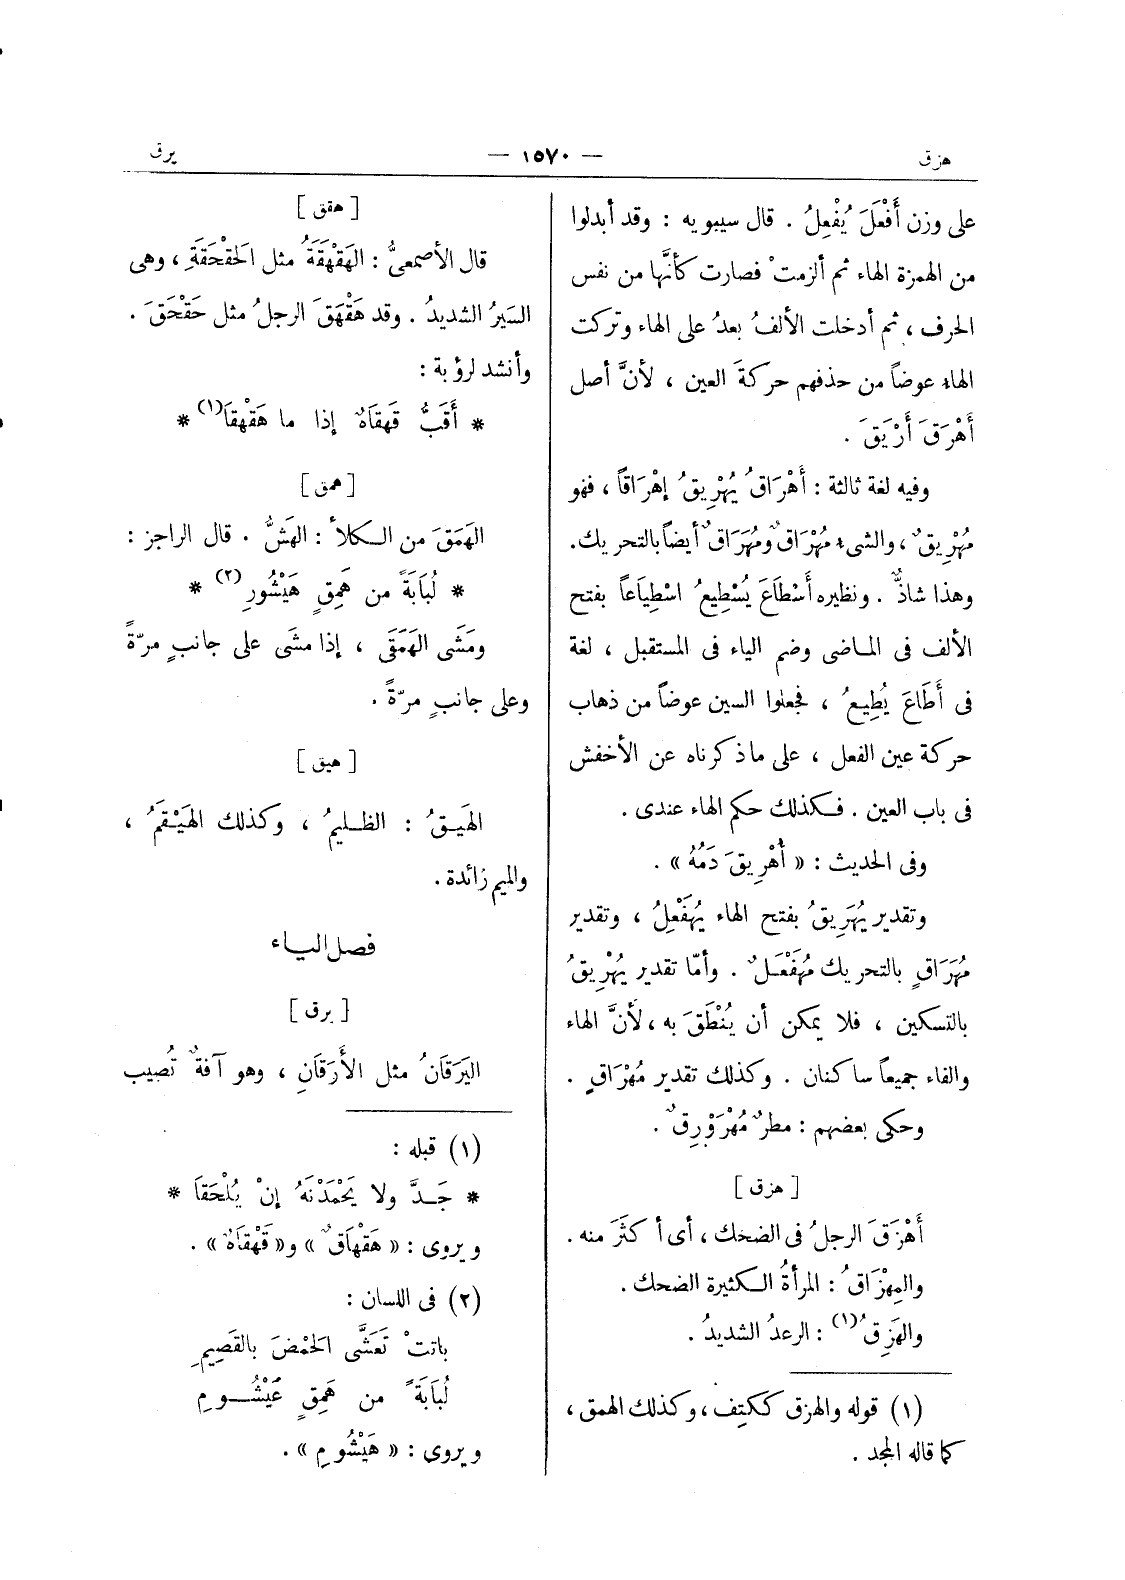 هزق — ١٥٧٠ — يرق
على وزن أَفْعَلَ يُفْعِلُ . قال سيبويه : وقد أبدلوا
من الهمزة الهاء ثم ألزمتْ فصارت كأنَّها من نفس
الحرف ، ثم أدخلت الألفُ بعدُ على الهاء وتركت
الهاء عوضاً من حذفهم حركةَ العين ، لأنَّ أصل
أَهْرَقَ أَرْيَقَ .
وفيه لغة ثالثة : أَهْرَاقُ يُهْرِيقُ إهْرَاقاً ، فهو
مُهْرِيقٌ ، والشىء مُهْرَاقٌ ومُهَرَاقٌ أيضاً بالتحريك.
وهذا شاذٌّ . ونظيره أَسْطَاعَ يُسْطِيعُ اسْطِيَاعاً بفتح
الألف فى الماضى وضم الياء فى المستقبل ، لغة
فى أَطَاعَ يُطِيعُ ، فجعلوا السين عوضاً من ذهاب
حركة عين الفعل ، على ما ذكرناه عن الأخفش
فى باب العين . فكذلك حكم الهاء عندى .
وفى الحديث : « أُهْرِيقَ دَمُهُ » .
وتقدير يُهَرِيقُ بفتح الهاء يُهَفْعِلُ ، وتقدير
مُهَرَاقٍ بالتحريك مُهَفْعَلٌ . وأمّا تقدير يُهْرِيقُ
بالتسكين ، فلا يمكن أن يُنْطَقَ به ، لأنَّ الهاء
والفاء جميعاً ساكنان . وكذلك تقدير مُهْرَاقٍ .
وحكى بعضهم : مطرٌ مُهْرَوْرِقٌ .
[ هزق ]
أَهْزَقَ الرجلُ فى الضحك ، أى أكثَرَ منه .
والمِهْزَاقُ : المرأةُ الكثيرة الضحك .
والهَزِقُ (١) : الرعدُ الشديدُ .
(١) قوله والهزق ككتِف ، وكذلك الهمق ،
كما قاله المجد .
[ هقق ]
قال الأصمعىُّ : الهَقْهَقَةُ مثل الحَقْحَقَةِ ، وهى
السَيرُ الشديدُ . وقد هَقْهَقَ الرجلُ مثل حَقْحَقَ .
وأنشد لرؤبة :
* أَقَبُّ قَهقَاهٌ إذا ما هَقْهقَا (١) *
[ همق ]
الهَمَقَ من الكلأ : الهَشُّ . قال الراجز :
* لُبَابَةً من هَمِقٍ هَيْشُورِ (٢) *
ومَشَى الهَمَقَى ، إذا مشَى على جانبٍ مرّةً
وعلى جانبٍ مرّةً .
[ هيق ]
الهَيقُ : الظليمُ ، وكذلك الهَيْقَمُ ،
والميم زائدة .
فصل الياء
[ يرق ]
اليَرَقَانُ مثل الأَرَقَانِ ، وهو آفةٌ تُصيب
(١) قبله :
* جَدَّ ولا يَحْمَدْنَهُ إنْ يُلْحَقَا *
ويروى : « هَقْهَاقٌ » و« قَهْقَاهٌ » .
(٢) فى اللسان :
باتتْ تَعَشَّى الحَمْضَ بالقَصِيمِ
لُبَابَةً من هَمِقٍ عَيْشُومِ
ويروى : « هَيْشُومِ » .